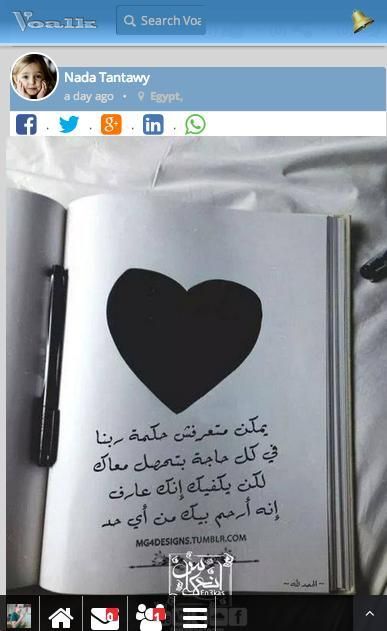 Voallk
Search Voa
Nada Tantawy
a day ago • Egypt,
يمكن متعرفش حكمة ربنا
في كل حاجة بتحصل معاك
لكن يكفيك إنك عارف
إنه أرحم بيك من أي حد
MG4DESIGNS.TUMBLR.COM
انعكاس
En3kas
~الحمد لله~